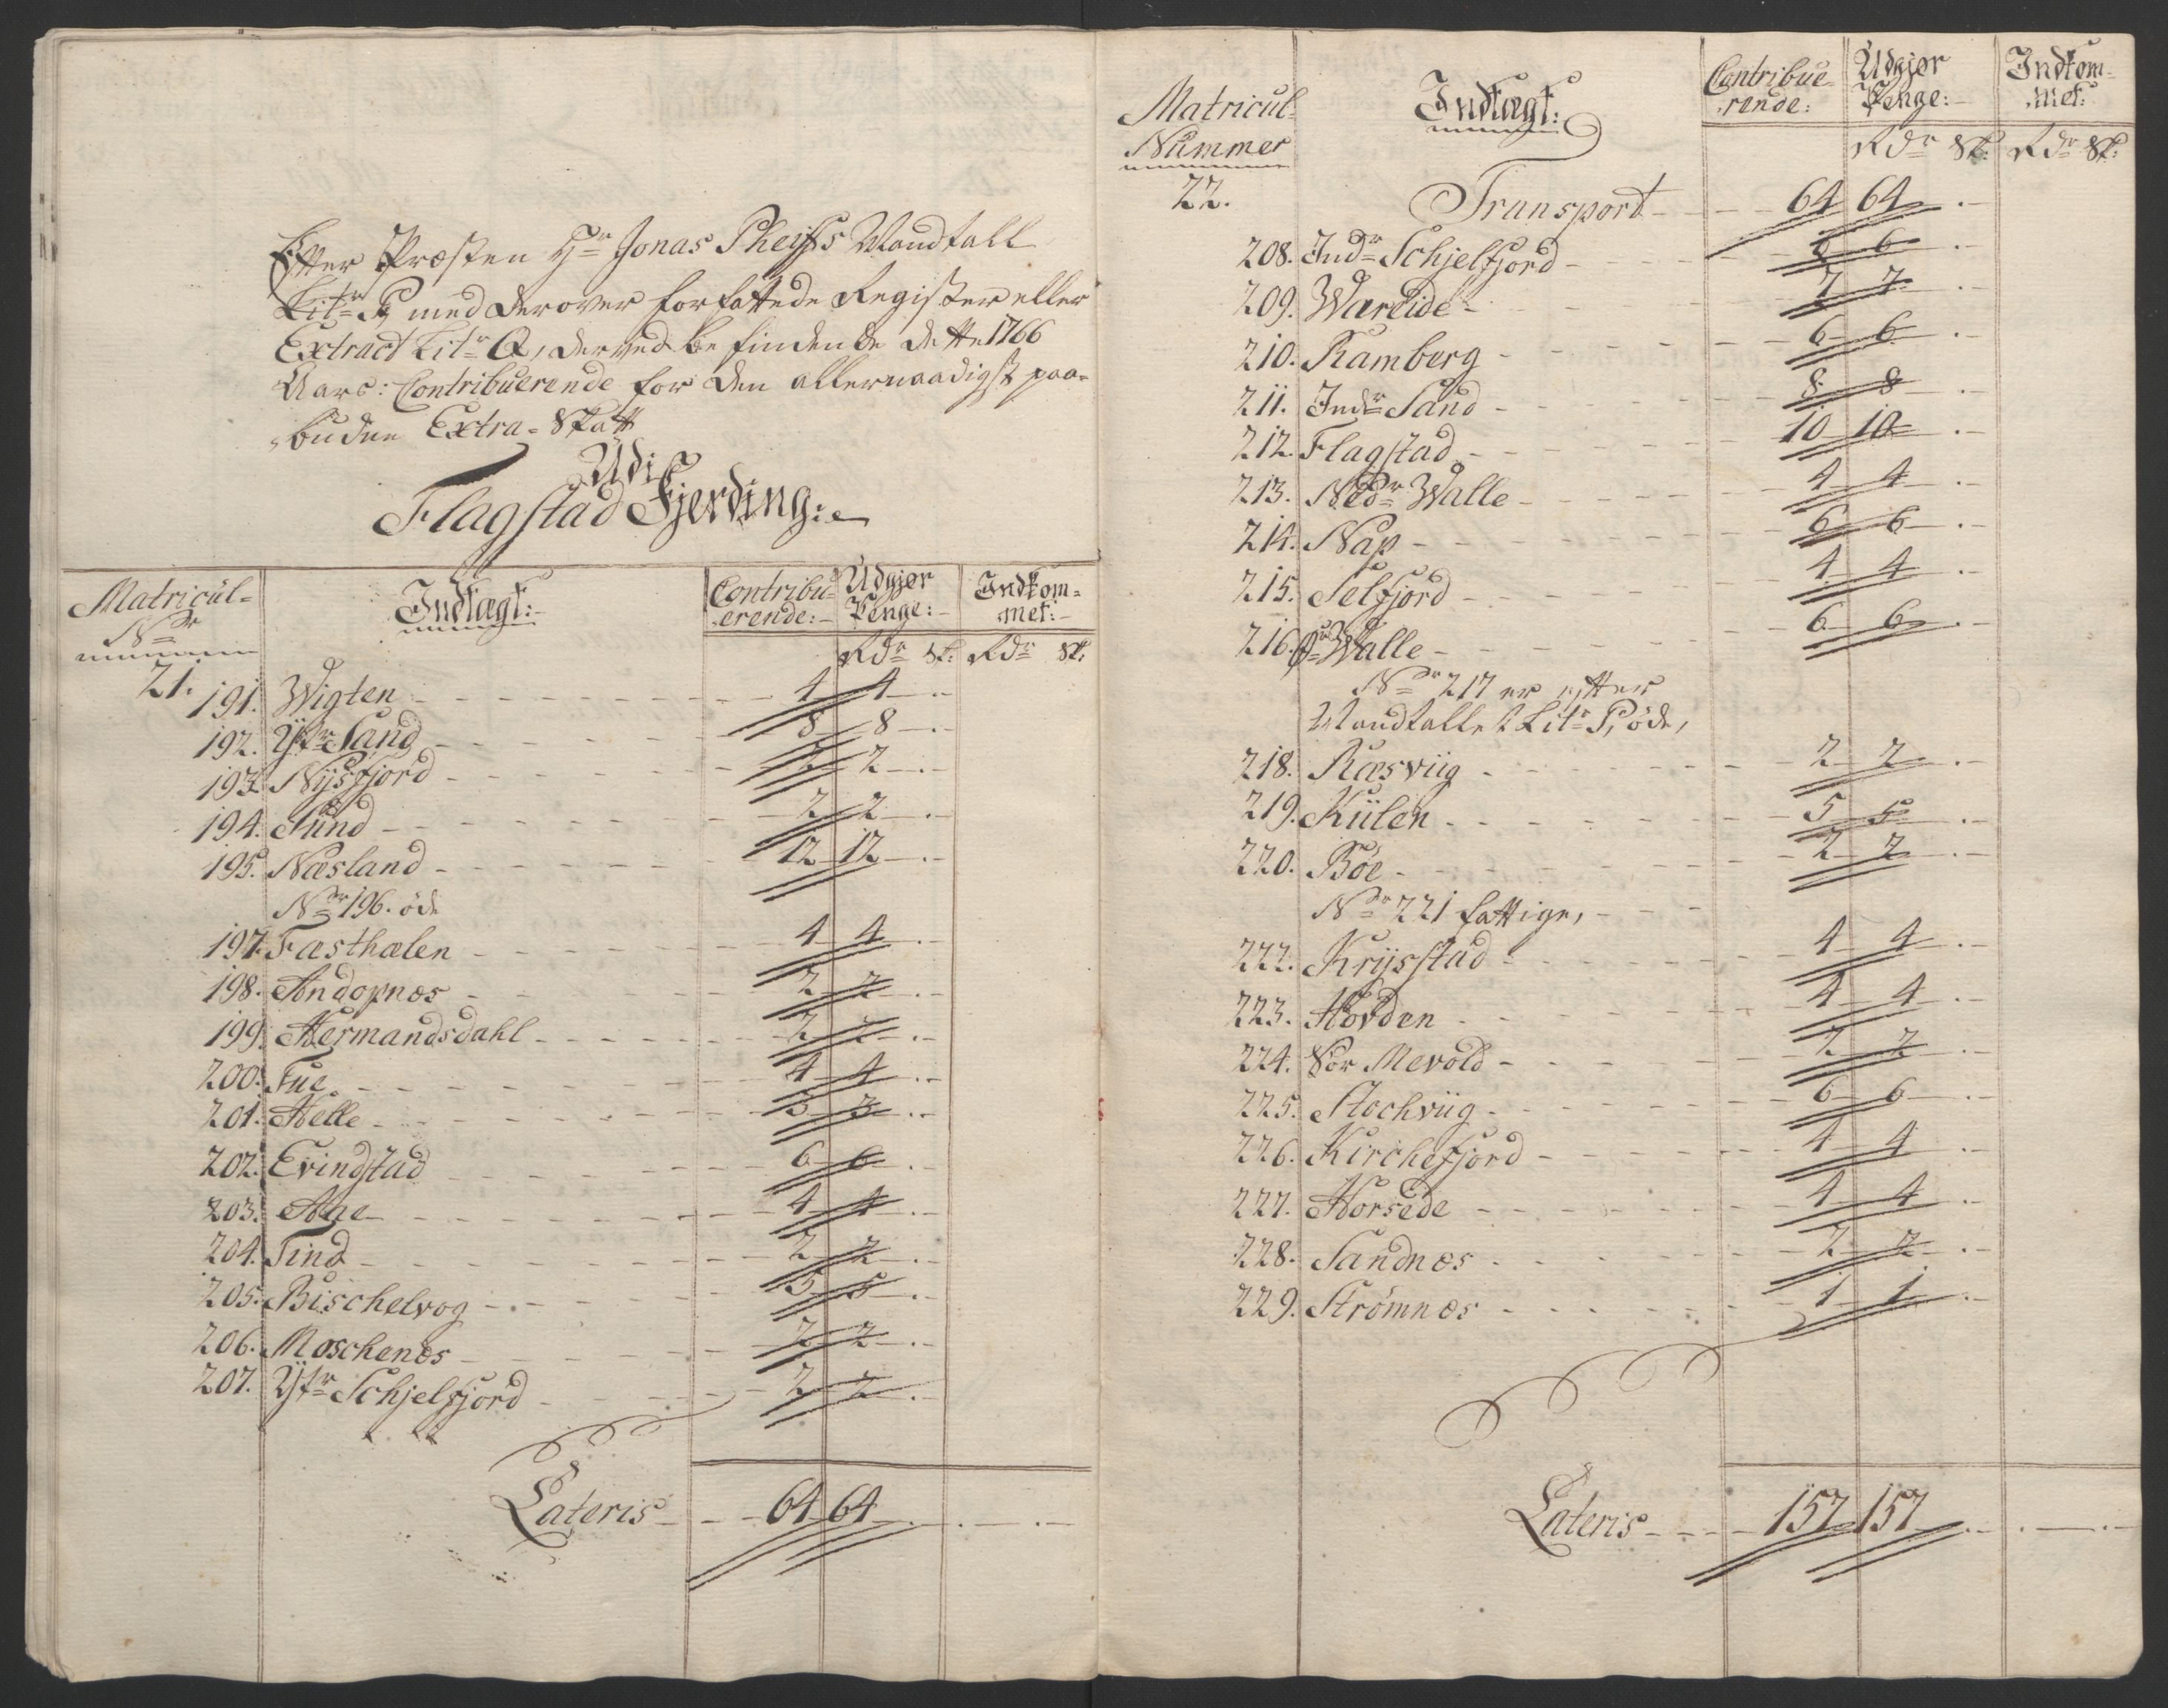 Efter Præsten Hr Jonas Pheiffs Mandtall
Litr P, med derover forfattede Register eller
Extract Litr Q, derved befindende dette 1766
Aars: Contribuerende for den allernaadigst paa-
buden Extra-Skatt
Udi
Flagstad Fjerding:
Matricul- Indtægt: Contribu- Udgjør Indkom-
Nr erende: Penge: met:
Rdr Sk: Rdr Sk:
21.
191. Wigten 4 4
192. Ytr Sand 8 8
193. Nysfjord 2 2
194. Sund 2 2
195. Næsland 12 12
Nr 196. øde
197. Fæsthælen 4 4
198. Andopnæs 2 2
199. Hermandsdahl 2 2
200. Tue 4 4
201. Helle 3 3
202. Evindstad 6 6
203. Aae 4 4
204. Tind 2 2
205. Bischelvog 5 5
206. Moschenæs 2 2
207. Ytr Schjelfjord 2 2
Lateris 64 64
Matricul- Indtægt: Contribue- Udgjør Indkom-
Nummer rende: Penge: met:
Rdr Sk: Rdr Sk:
22. Transport 64 64
208. Indr Schjelfjord 6
209. Wareide 7 7
210. Ramberg 6 6
211. Indr Sand 8 8
212. Flagstad 10 10
213. Nedr Walle 4 4
214. Nap 6 6
215. Selfjord 4 4
216. Walle 6 6
Nr 217 er efter
Mandtallet Litr P, øde,
218. Ræsviig 2 2
219. Kiilen 5 5
220. Bøe 2 2
Nr 221 fattige,
222. Krysstad 4 4
223. Hovden 4 4
224. Sør Mevold 2 2
225. Stochviig 6 6
226. Kirchefjord 4 4
227. Horsede 4 4
228. Sandnæs 2 2
229. Strømnæs 1 1
Lateris 157 157